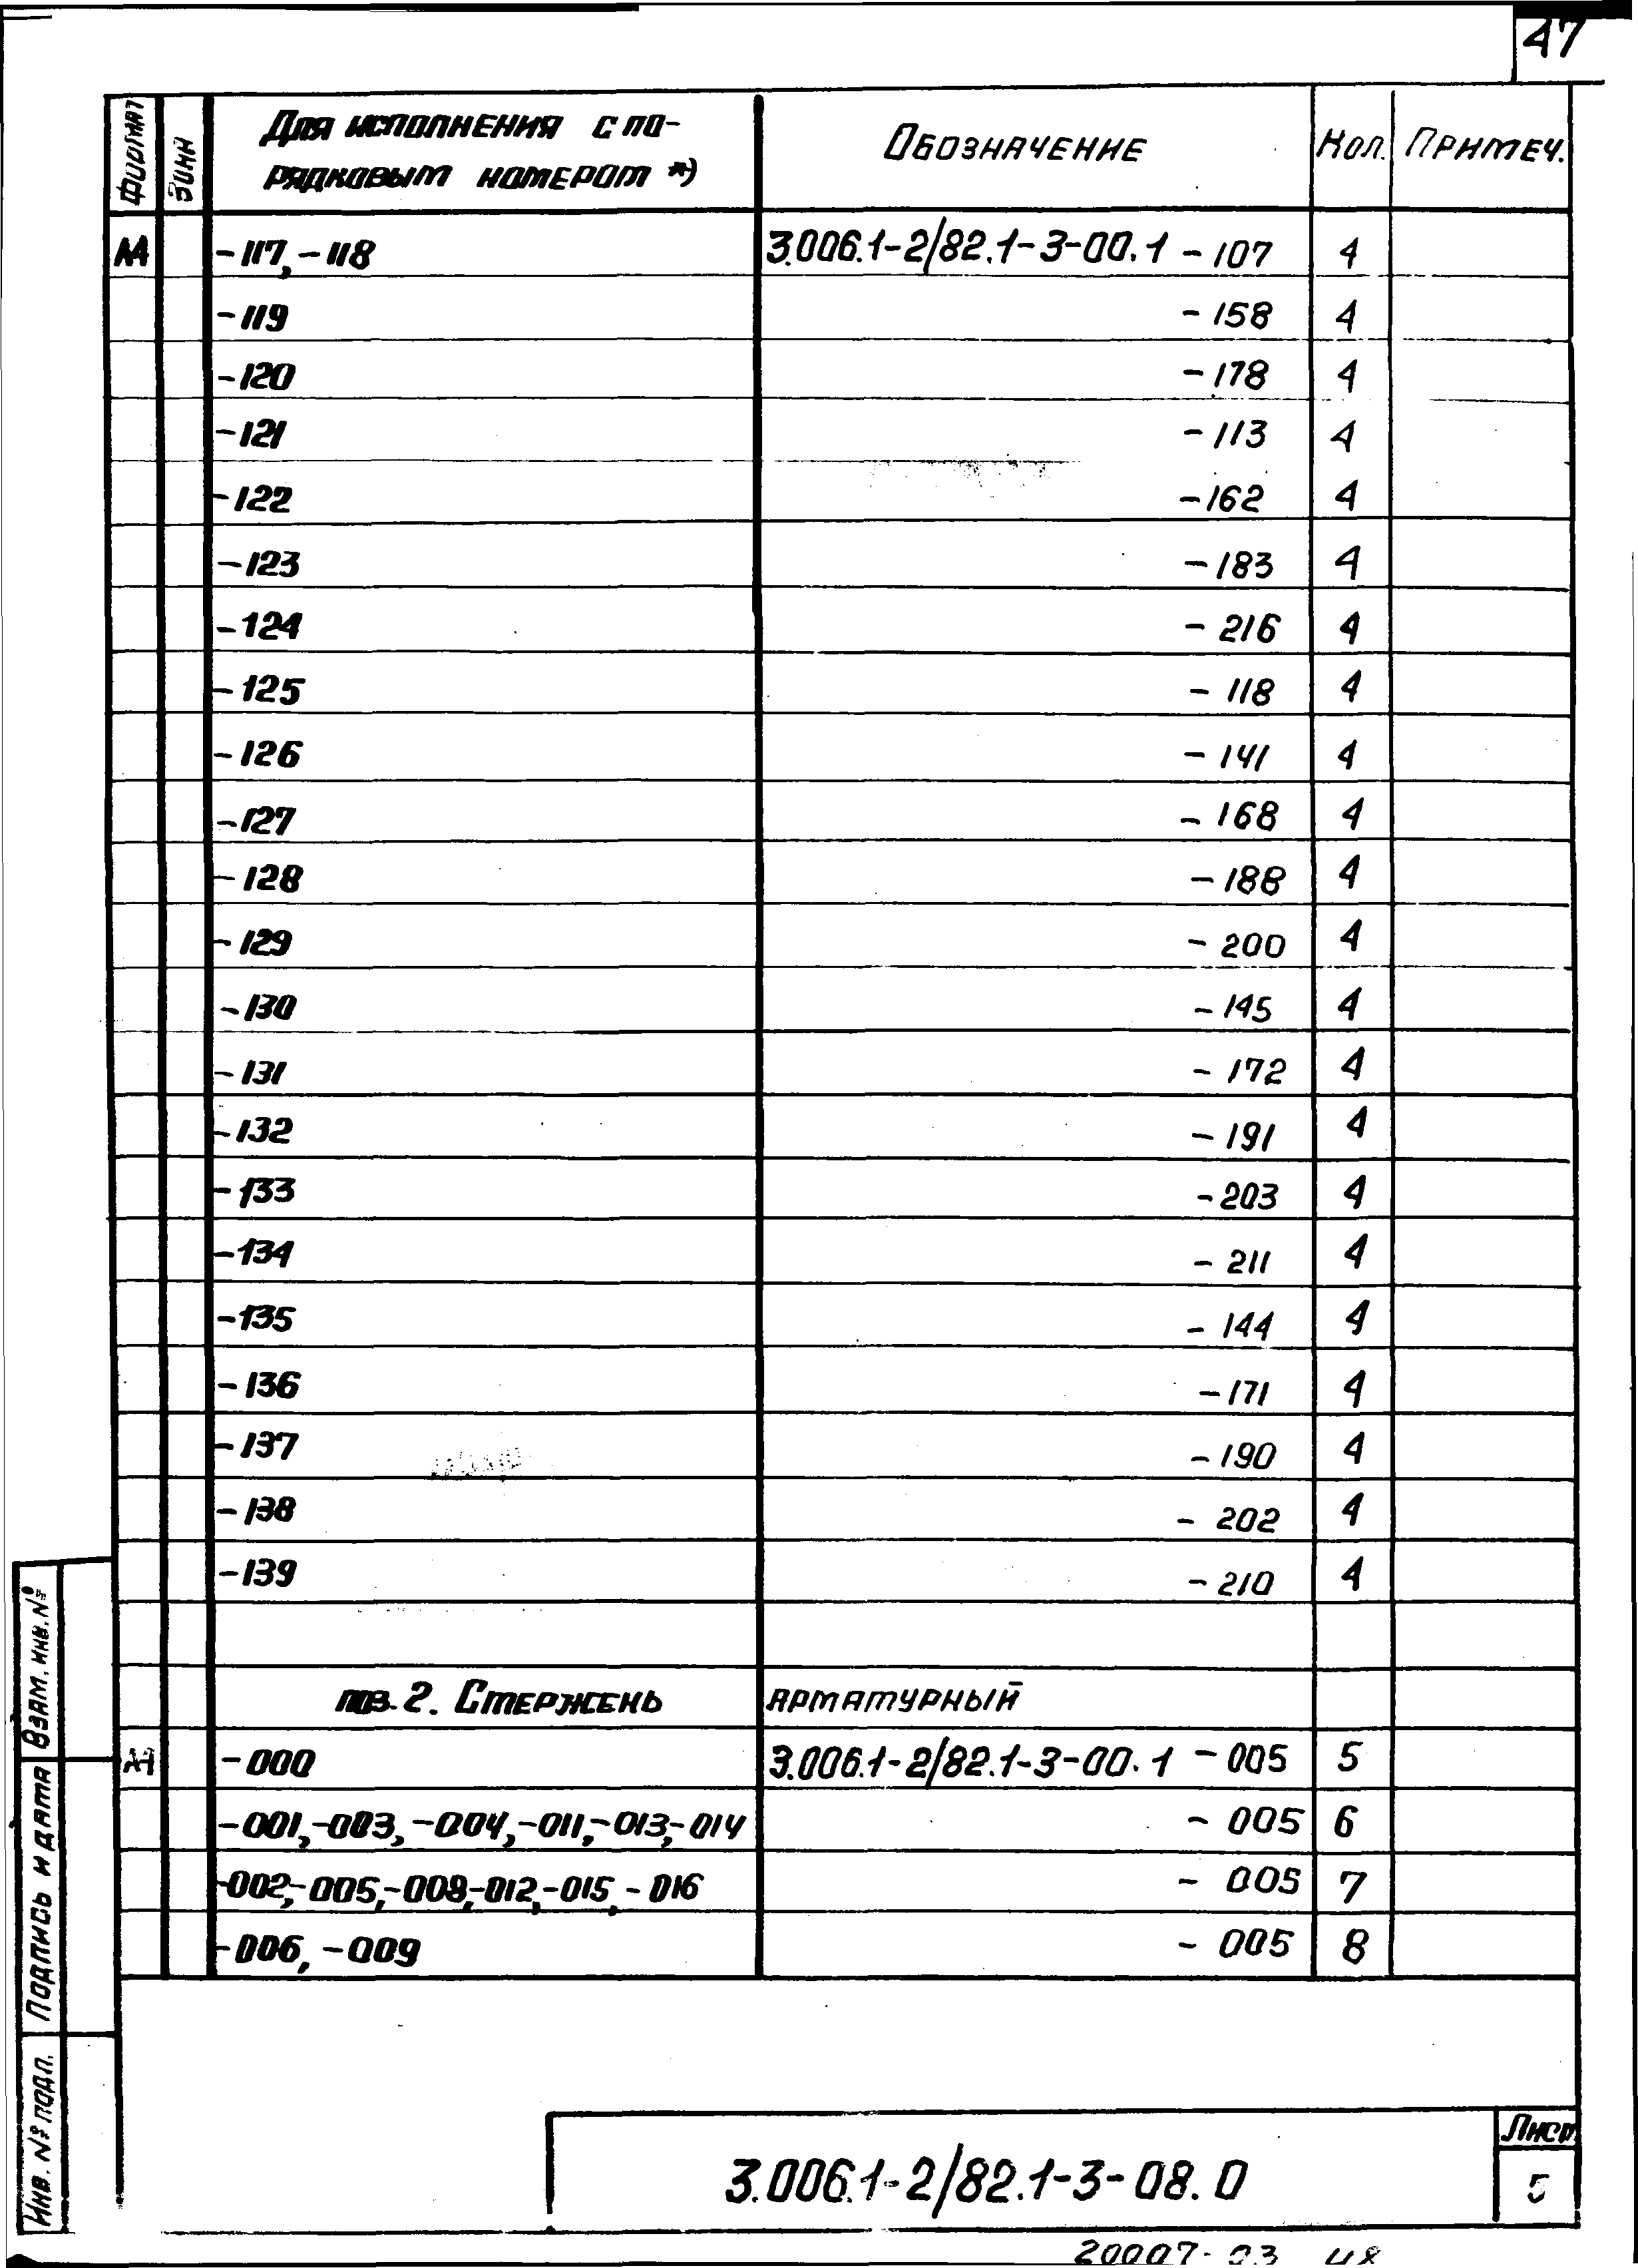 47
Формат Зона Для исполнения с по-
рядковым номером *) Обозначение Кол. Примеч.
А4 -117, -118 3.006.1-2/82.1-3-00.1 -107 4
-119 -158 4
-120 -178 4
-121 -113 4
-122 -162 4
-123 -183 4
-124 -216 4
-125 -118 4
-126 -141 4
-127 -168 4
-128 -188 4
-129 -200 4
-130 -145 4
-131 -172 4
-132 -191 4
-133 -203 4
-134 -211 4
-135 -144 4
-136 -171 4
-137 -190 4
-138 -202 4
-139 -210 4
поз. 2. Стержень арматурный
А4 -000 3.006.1-2/82.1-3-00.1 -005 5
-001,-003,-004,-011,-013,-014 -005 6
-002,-005,-008,-012,-015,-016 -005 7
-006, -009 -005 8
Взам. инв. №
Подпись и дата
Инв. № подл.
3.006.1-2/82.1-3-08.0
Лист
5
20007-03 48